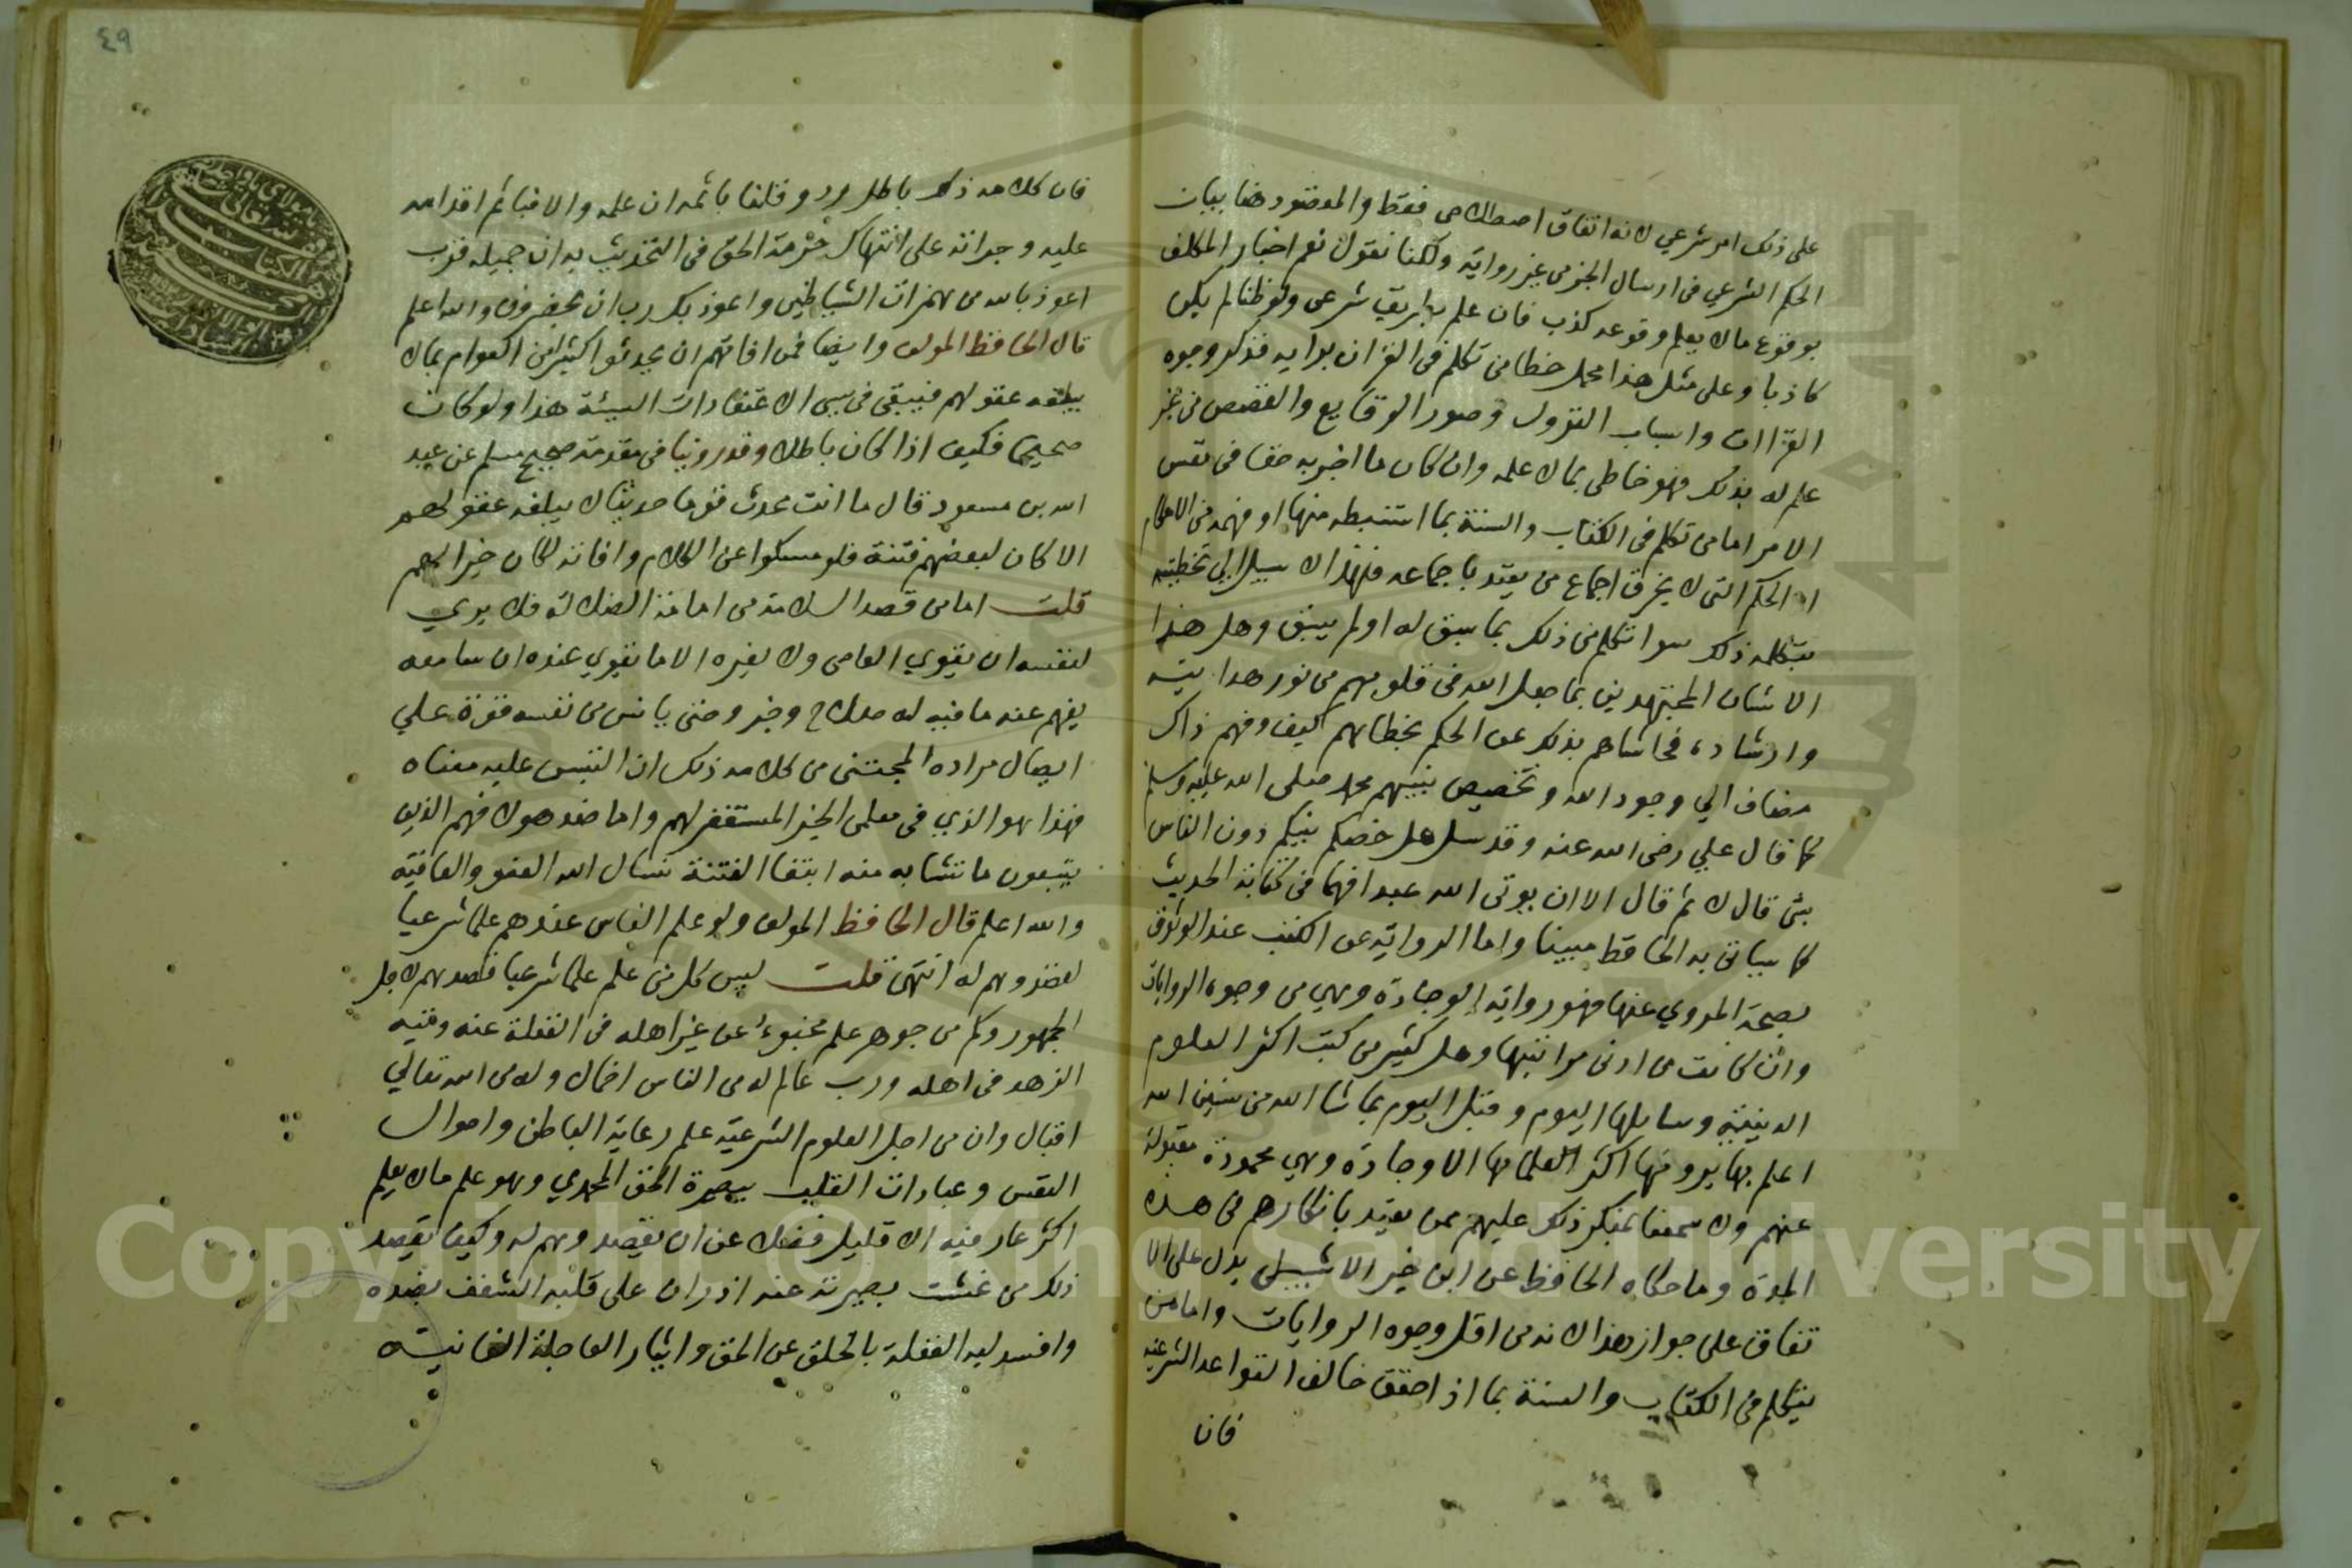 على ذلك امر شرعي لانه اتفاق اصطلاحى فقط والمقصود هنا بيان
الحكم الشرعي فى ارسال الخبر من غير رواية ولكنا نقول نعم اخبار المكلف
بوقوع ما لا يعلم وقوعه كذب فان علم بطريق شرعى ولو ظنا لم يكن
كاذبا وعلى مثل هذا محمل خطا من تكلم فى القران برايه فذكر وجوه
القراات واسباب النزول وصور الوقايع والقصص من غير
علم له بذلك فهو خاطى بما لا علمه وان كان ما اخبر به حقا فى نفس
الامر اما من تكلم فى الكتاب والسنة بما استنبطه منها او فهمه من الاحكام
او الحكم التى لا يخرق اجماع من يعتد باجماعه فهذا لا سبيل الى تخطيته
بتكلمه ذلك سوا تكلم من ذلك بما سبق له او لم يسبق وهل هذا
الا شان المجتهدين بما جعل الله فى قلوبهم من نور هدايته
وارشاده فحاشاهم بذلك عن الحكم بخطائهم كيف وفهم ذاك
مضاف الي وجود الله وتخصيص نبيهم محمد صلى الله عليه وسلم
كما قال علي رضى الله عنه وقد سل هل خصكم نبيكم دون الناس
بشى قال لا ثم قال الا ان يوتى الله عبدا فهما فى كتابه الحديث
كما سياتى به الحافظ مبينا واما الرواية عن الكتب عند الوثوق
بصحة المروي عنها فهو رواية الوجادة وهي من وجوه الروايات
وان كانت من ادنى مراتبها وهل كثير من كتب اكثر العلوم
الدينية وسايلها اليوم وقبل اليوم بما شا الله من سنين الله
اعلم بها يرويها اكثر العلما بها الا وجادة وهي محمودة مقبولة
عنهم ولا سمعنا بمنكر ذلك عليهم ممن يعتد بانكارهم فى هذه
المدة وما حكاه الحافظ عن ابن خير الاشبيلى يدل على الا
تفاق على جواز هذا لانه من اقل وجوه الروايات واما من
يتكلم فى الكتاب والسنة بما اذا حقق خالف القواعد الشرعية
فان
٤٩
فان كلامه ذلك باطل ورد وقلنا باثمه ان علمه والا فباثم اقدامه
عليه وجراته على انتهاك حرمة الحق فى التحديث به ان جهله فرب
اعوذ بالله من همزات الشياطين واعوذ بك رب ان يحضرون والله اعلم
قال الحافظ المولف وايضا فمن افاتهم ان يحدثوا كثيرا من العوام بما لا
يبلغه عقولهم فيبقى فى سى الاعتقادات السيئة هذا ولو كان
صحيحا فكيف اذا كان باطلا وقد روينا فى مقدمة صحيح مسلم عن عبد
الله بن مسعود قال ما انت محدث قوما حديثا لا يبلغه عقولهم
الا كان لبعضهم فتنة فلو مسكوا عن الكلام وافاته لكان خيرا لهم
قلت اما من قصد السلامة من اضافة الضلالة فلا يروي
لنفسه ان يقوي العاصى ولا يغيره الا ما يقوي عنده ان سامعه
يفهم عنه ما فيه له صلاح وخير وحتى يانس من نفسه قوة علي
ايصال مراده المجتنى من كلامه ذلك ان التبس عليه معناه
فهذا هو الذي فى معلمى الخير المستغفر لهم واما ضد هولا فهم الذين
يتبعون ما تشابه منه ابتغا الفتنة نسال الله العفو والعافية
والله اعلم قال الحافظ المولف ولو علم الناس عندهم علما شرعيا
لقصدوهم له انتهى قلت ليس كل من علم علما شرعيا قصدهم لاجل
الجمهور وكم من جوهر علم مخبوء عن غير اهله فى الغفلة عنه وفيه
الزهد فى اهله ورب عالم له من الناس اخمال وله من الله تعالي
اقبال وان من اجل العلوم الشرعية علم رعاية الباطن واحوال
النفس وعبادات القلب ببصيرة الحق المحمدي وهو علم ما لا يعلم
اكثر عارفيه الا قليل فضلا عن ان يقصدوهم له وكيف يقصد
ذلك من غشت بصيرته عنه اذ ران على قلبه الشغف بضده
وافسد لبه الغفلة بالخلق عن الحق وايثار العاجلة الفانية
Copyright © King Saud University